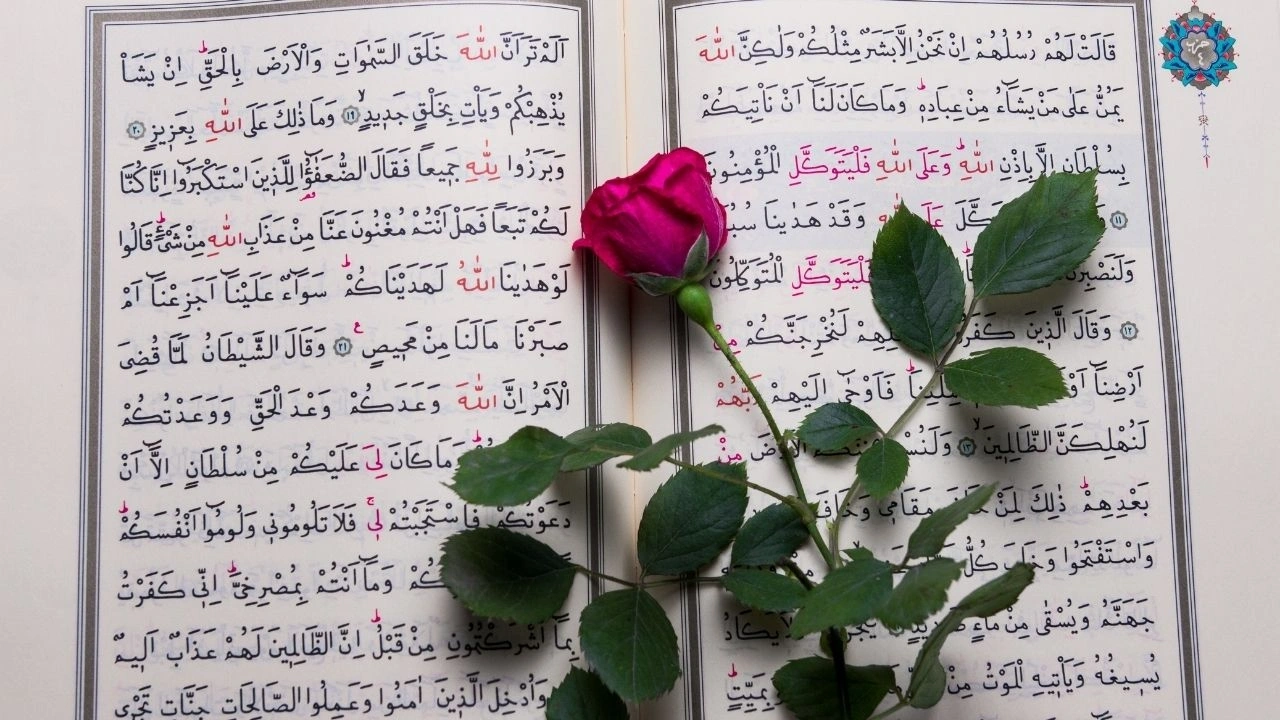 قَالَتْ لَهُمْ رُسُلُهُمْ اِنْ نَحْنُ اِلَّا بَشَرٌ مِثْلُكُمْ وَلٰكِنَّ اللّٰهَ
يَمُنُّ عَلٰى مَنْ يَشَٓاءُ مِنْ عِبَادِه۪ۜ وَمَا كَانَ لَنَٓا اَنْ نَأْتِيَكُمْ
بِسُلْطَانٍ اِلَّا بِاِذْنِ اللّٰهِۜ وَعَلَى اللّٰهِ فَلْيَتَوَكَّلِ الْمُؤْمِنُونَ
﴿١١﴾ عَلَى اللّٰهِ وَقَدْ هَدٰينَا
وَلَنَصْبِرَنَّ فَلْيَتَوَكَّلِ الْمُتَوَكِّلُونَ
﴿١٢﴾ وَقَالَ الَّذ۪ينَ كَفَرُوا لَنُخْرِجَنَّكُمْ مِنْ
اَرْضِنَٓا فَاَوْحٰٓى اِلَيْهِمْ رَبُّهُمْ
لَنُهْلِكَنَّ الظَّالِم۪ينَۙ ﴿١٣﴾ الْاَرْضَ مِنْ
بَعْدِهِمْۜ ذٰلِكَ لِمَنْ خَافَ مَقَام۪ي وَخَافَ
وَاسْتَفْتَحُوا وَخَابَ كُلُّ
جَهَنَّمُ وَيُسْقٰى مِنْ مَٓاءٍ صَد۪يدٍۙ يَكَادُ
يُس۪يغُهُ وَيَأْت۪يهِ الْمَوْتُ مِنْ بِمَيِّتٍۜ
اَلَمْ تَرَ اَنَّ اللّٰهَ خَلَقَ السَّمٰوَاتِ وَالْاَرْضَ بِالْحَقِّۜ اِنْ يَشَأْ
يُذْهِبْكُمْ وَيَأْتِ بِخَلْقٍ جَد۪يدٍۙ ﴿١٩﴾ وَمَا ذٰلِكَ عَلَى اللّٰهِ بِعَز۪يزٍ ﴿٢٠﴾
وَبَرَزُوا لِلّٰهِ جَم۪يعاً فَقَالَ الضُّعَفٰٓؤُ۬ا لِلَّذ۪ينَ اسْتَكْبَرُٓوا اِنَّا كُنَّا
لَكُمْ تَبَعاً فَهَلْ اَنْتُمْ مُغْنُونَ عَنَّا مِنْ عَذَابِ اللّٰهِ مِنْ شَيْءٍۜ قَالُوا
لَوْ هَدٰينَا اللّٰهُ لَهَدَيْنَاكُمْۜ سَوَٓاءٌ عَلَيْنَٓا اَجَزِعْنَٓا اَمْ
صَبَرْنَا مَا لَنَا مِنْ مَح۪يصٍ۟ ﴿٢١﴾ وَقَالَ الشَّيْطَانُ لَمَّا قُضِيَ
الْاَمْرُ اِنَّ اللّٰهَ وَعَدَكُمْ وَعْدَ الْحَقِّ وَوَعَدْتُكُمْ
وَمَا كَانَ لِيَ عَلَيْكُمْ مِنْ سُلْطَانٍ اِلَّٓا اَنْ
دَعَوْتُكُمْ فَاسْتَجَبْتُمْ ل۪يۚ فَلَا تَلُومُون۪ي وَلُومُٓوا اَنْفُسَكُمْۜ
وَمَٓا اَنْتُمْ بِمُصْرِخِيَّۜ اِنّ۪ي كَفَرْتُ
بِمَٓا اَشْرَكْتُمُونِ مِنْ قَبْلُۜ اِنَّ الظَّالِم۪ينَ لَهُمْ عَذَابٌ اَل۪يمٌ
وَاُدْخِلَ الَّذ۪ينَ اٰمَنُوا وَعَمِلُوا الصَّالِحَاتِ جَنَّاتٍ تَجْر۪ي